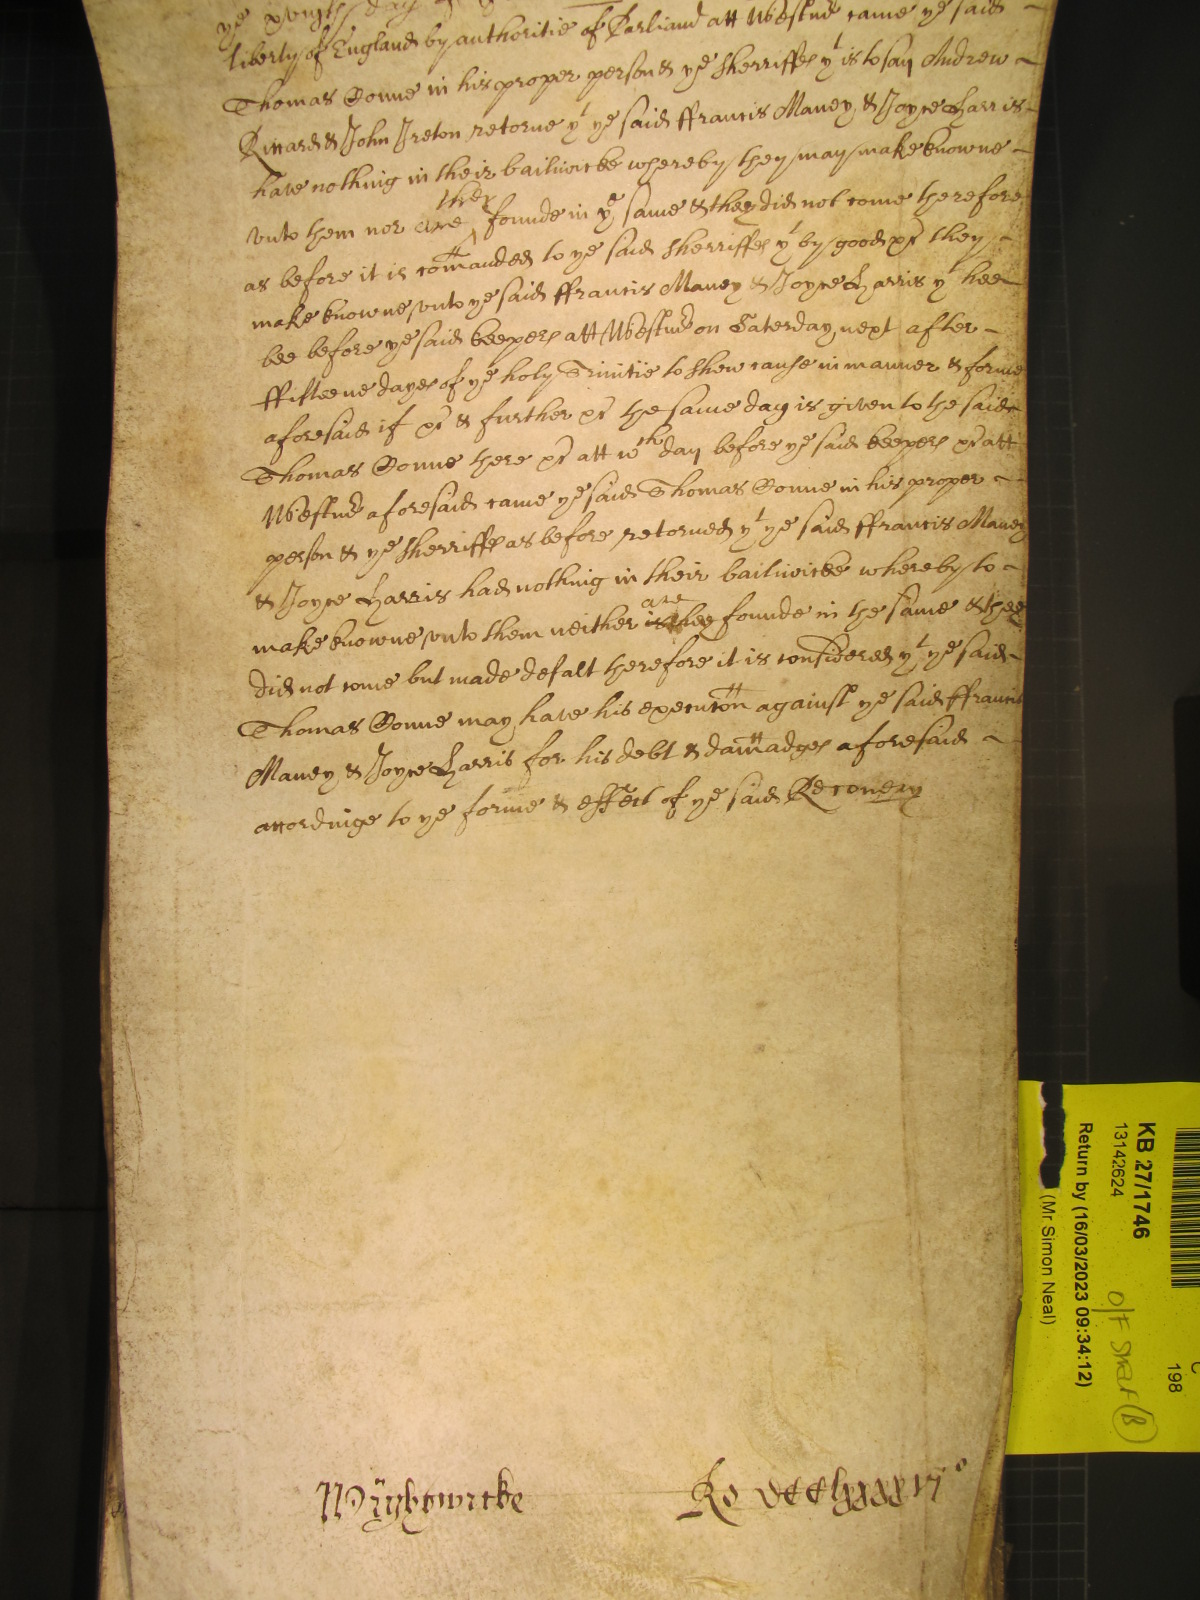 liberty of England by authoritie of Parliamt att Westmr came ye said
Thomas Bonne in his proper person & ye Sherriffes yt is to say Andrew
Riccard & John Ireton retorne yt ye said ffrancis Maney & Joyce Harris
have nothing in their bailiwicke whereby they may make knowne
vnto them nor are they founde in ye same & they did not come therefore
as before it is comanded to ye said Sherriffes yt by good &c they
make knowne vnto ye said ffrancis Maney & Joyce Harris yt hee
bee before ye said keepers att Westmr on Saterday next after
ffifteene dayes of ye holy Trinitie to shew cause in manner & forme
aforesaid if &c & further &c the same day is given to the said
Thomas Bonne here &c att wch day before ye said keepers &c att
Westmr aforesaid came ye said Thomas Bonne in his proper
person & ye Sherriffes as before retorned yt ye said ffrancis Maney
& Joyce Harris had nothing in their bailiwicke whereby to
make knowne vnto them neither are they founde in the same & they
did not come but made defalt therefore it is considered yt ye said
Thomas Bonne may have his execucon against ye said ffrancis
Maney & Joyce Harris for his debt & damadges aforesaid
accordinge to ye forme & effect of ye said Recovery
Wightwicke
Ro DCClxxxxvjo
KB 27/1746
13142624
Return by (16/03/2023 09:34:12)
(Mr Simon Neal)
O/F
198